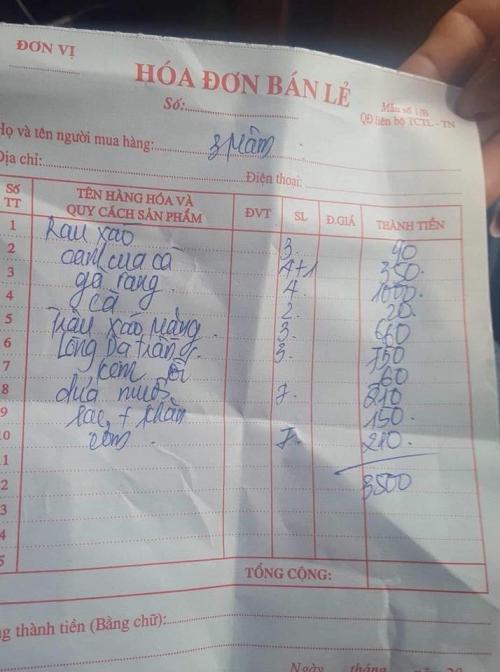 ĐƠN VỊ
HÓA ĐƠN BÁN LẺ
Số:
Mẫu số 1/B
QĐ liên bộ TCTL - TN
Họ và tên người mua hàng: 3 mâm
Địa chỉ:
Điện thoại:
Số TT TÊN HÀNG HÓA VÀ QUY CÁCH SẢN PHẨM ĐVT SL Đ.GIÁ THÀNH TIỀN
1 Rau xào 3 90
2 canh cua cà 4+1 350
3 gà rang 4 1000
4 cà 2 20
5 Trâu xào măng 3 660
6 Lòng Dạ tràng 3 750
7 60
8 dừa nước 7 210
9 lạc + khăn 150
10 cơm 7 210
11
12 3500
3
4
5
TỔNG CỘNG:
ng thành tiền (Bằng chữ):
Ngày tháng năm 20